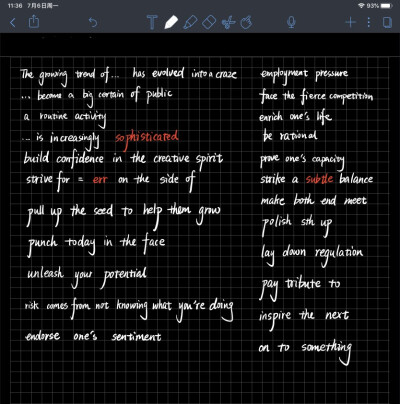 11:36 7月6日周一
93%
The growing trend of... has evolved into a craze
... become a big certain of public
a routine activity
... is increasingly sophisticated
build confidence in the creative spirit
strive for = err on the side of
pull up the seed to help them grow
punch today in the face
unleash your potential
risk comes from not knowing what you're doing
endorse one's sentiment
employment pressure
face the fierce competition
enrich one's life
be rational
prove one's capacity
strike a subtle balance
make both end meet
polish sth up
lay down regulation
pay tribute to
inspire the next
on to something